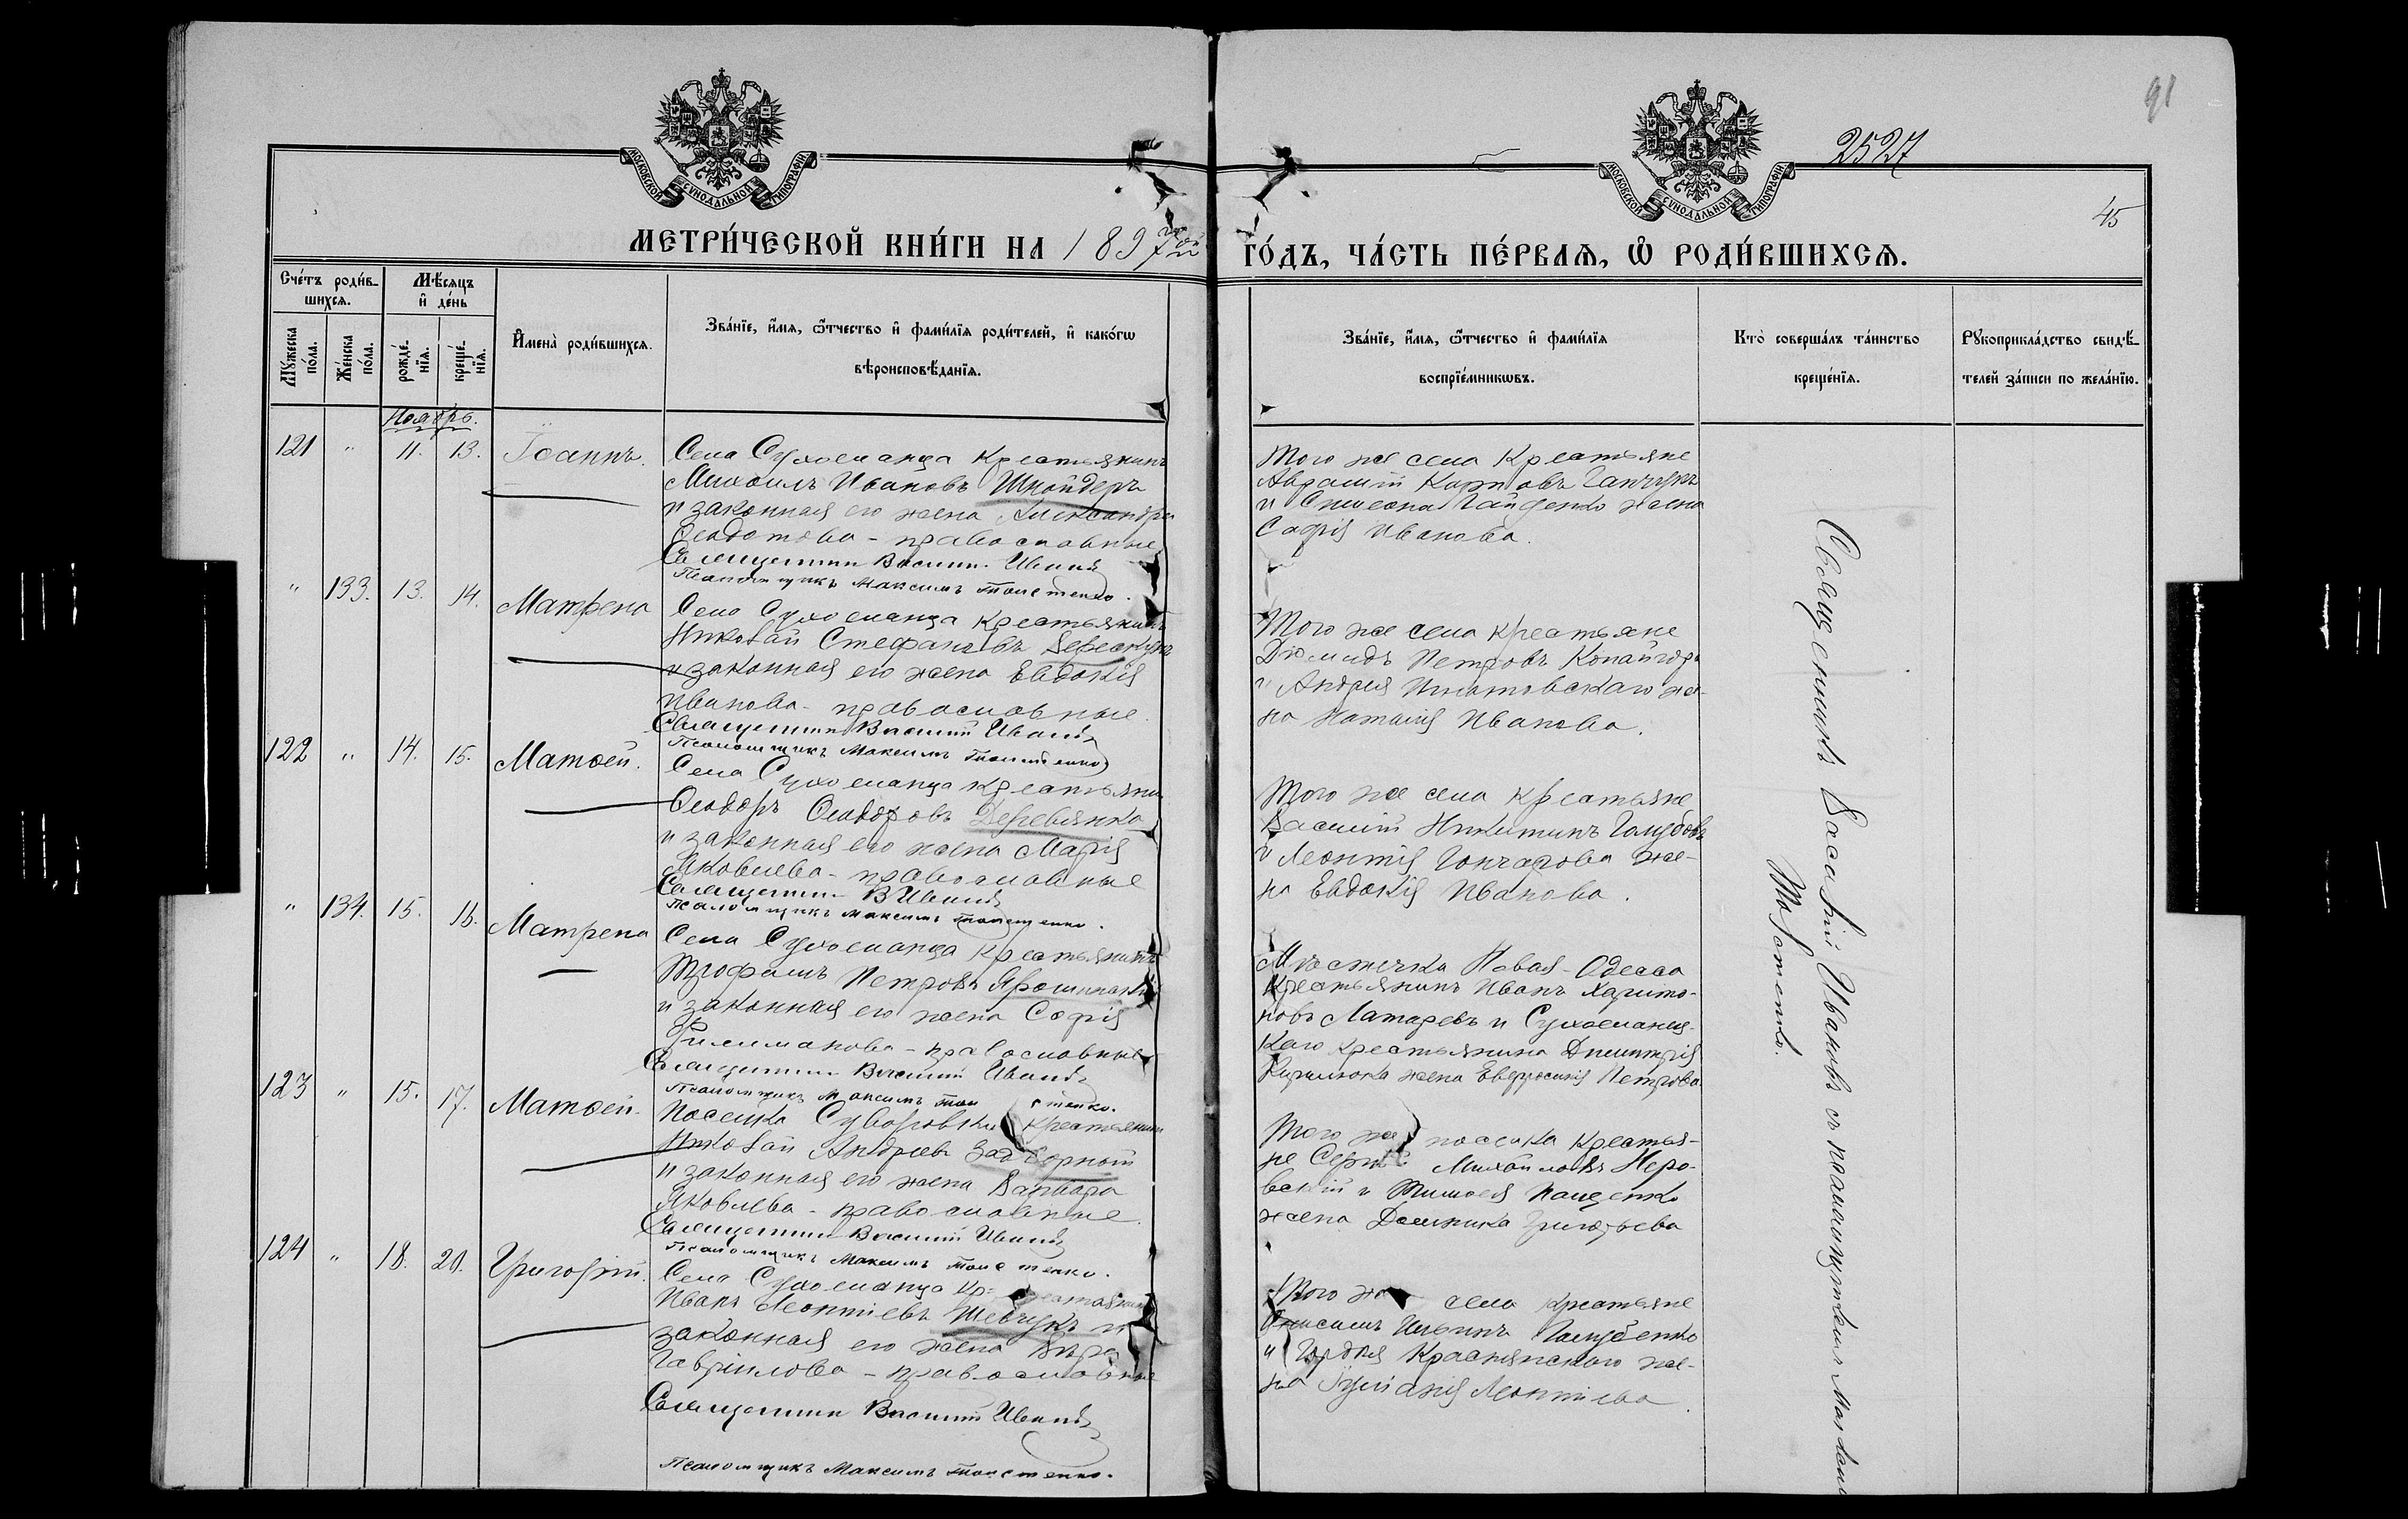 91
2527
45
МОСКОВСКОЙ СѴНОДАЛЬНОЙ ТИПОГРАФІИ
МОСКОВСКОЙ СѴНОДАЛЬНОЙ ТИПОГРАФІИ
МЕТРИ́ЧЕСКОЙ КНИ́ГИ НА 1897 ГО́ДЪ, ЧА́СТЬ ПЕ́РВАѦ, Ѽ РОДИ́ВШИХСѦ.
Сче́тъ роди́в-
шихсѧ.
Мѣ́сѧцъ
и҆ де́нь
Мꙋ́жеска
по́ла.
Же́нска
по́ла.
рожде́-
нїѧ.
креще́-
нїѧ.
И҆мена̀ роди́вшихсѧ.
Зва́нїе, и҆́мѧ, ѻ҆́тчество и҆ фами́лїѧ роди́телей, и҆ како́гѡ
вѣроисповѣ́данїѧ.
Зва́нїе, и҆́мѧ, ѻ҆́тчество и҆ фами́лїѧ
воспрїе́мникѡвъ.
Кто̀ соверша́лъ та́инство
креще́нїѧ.
Рꙋкоприкла́дство свидѣ́-
телей за́писи по жела́нїю.
Ноябрь.
121 " 11. 13. Іоаннъ.
Села Сухоеланца Крестьянинъ
Михаилъ Ивановъ Шнайдеръ
и законная его жена Александра
Ѳеодотова - православные
Священникъ Василій Ивановъ
Псаломщикъ Максимъ Толстенко.
Того же села Крестьяне
Авраамій Карповъ Ганчукъ
и Симеона Гайденко жена
Софія Иванова.
" 133. 13. 14. Матрена
Села Сухоеланца Крестьянинъ
Николай Стефановъ
и законная его жена Евдокія
Иванова - православные.
Священникъ Василій Ивановъ
Псаломщикъ Максимъ Толстенко
Того же села крестьяне
Діомидъ Петровъ
и Андрея Игнатовскаго же-
на Наталія Иванова.
122 " 14. 15. Матѳей.
Села Сухоеланца крестьянинъ
Ѳеодоръ Ѳеодоровъ Деревянко
и законная его жена Марія
Яковлева - православные
Священникъ В Ивановъ
Псаломщикъ Максимъ Толстенко.
Того же села крестьяне
Василій Никитинъ Голубовъ
и Леонтія Гончарова же-
на Евдокія Иванова.
" 134. 15. 16. Матрена
Села Сухоеланца крестьянинъ
Трофимъ Петровъ
и законная его жена Софія
Филимонова - православные
Священникъ Василій Ивановъ
Псаломщикъ Максимъ Толстенко.
Мѣстечка Новая-Одесса
Крестьянинъ Иванъ Харито-
новъ Латаревъ и Сухоеланец-
каго крестьянина Димитрія
Кирилюка жена Евфросинія Петрова
123 " 15. 17. Матѳей.
Поселка Суворовки Крестьянинъ
Николай Андреевъ Задворный
и законная его жена Варвара
Яковлева - православные.
Священникъ Василій Ивановъ
Псаломщикъ Максимъ Толстенко.
Того же поселка Крестья-
не Сергій Михайловъ Неро-
вскій и Тимоѳея Пащенко
жена Домника Григорьева
124 " 18. 20. Григорій.
Села Сухоеланца Крестьянинъ
Иванъ Леонтіевъ Шевчукъ и
законная его жена Вѣра
Гавріилова - православные
Священникъ Василій Ивановъ
Псаломщикъ Максимъ Толстенко.
Того же села крестьяне
Онисимъ Ильинъ Голубенко
и Гордѣя Краснянскаго же-
на Іуліанія Леонтіева.
Священникъ Василій Ивановъ съ псаломщикомъ Максимомъ
Толстенко.